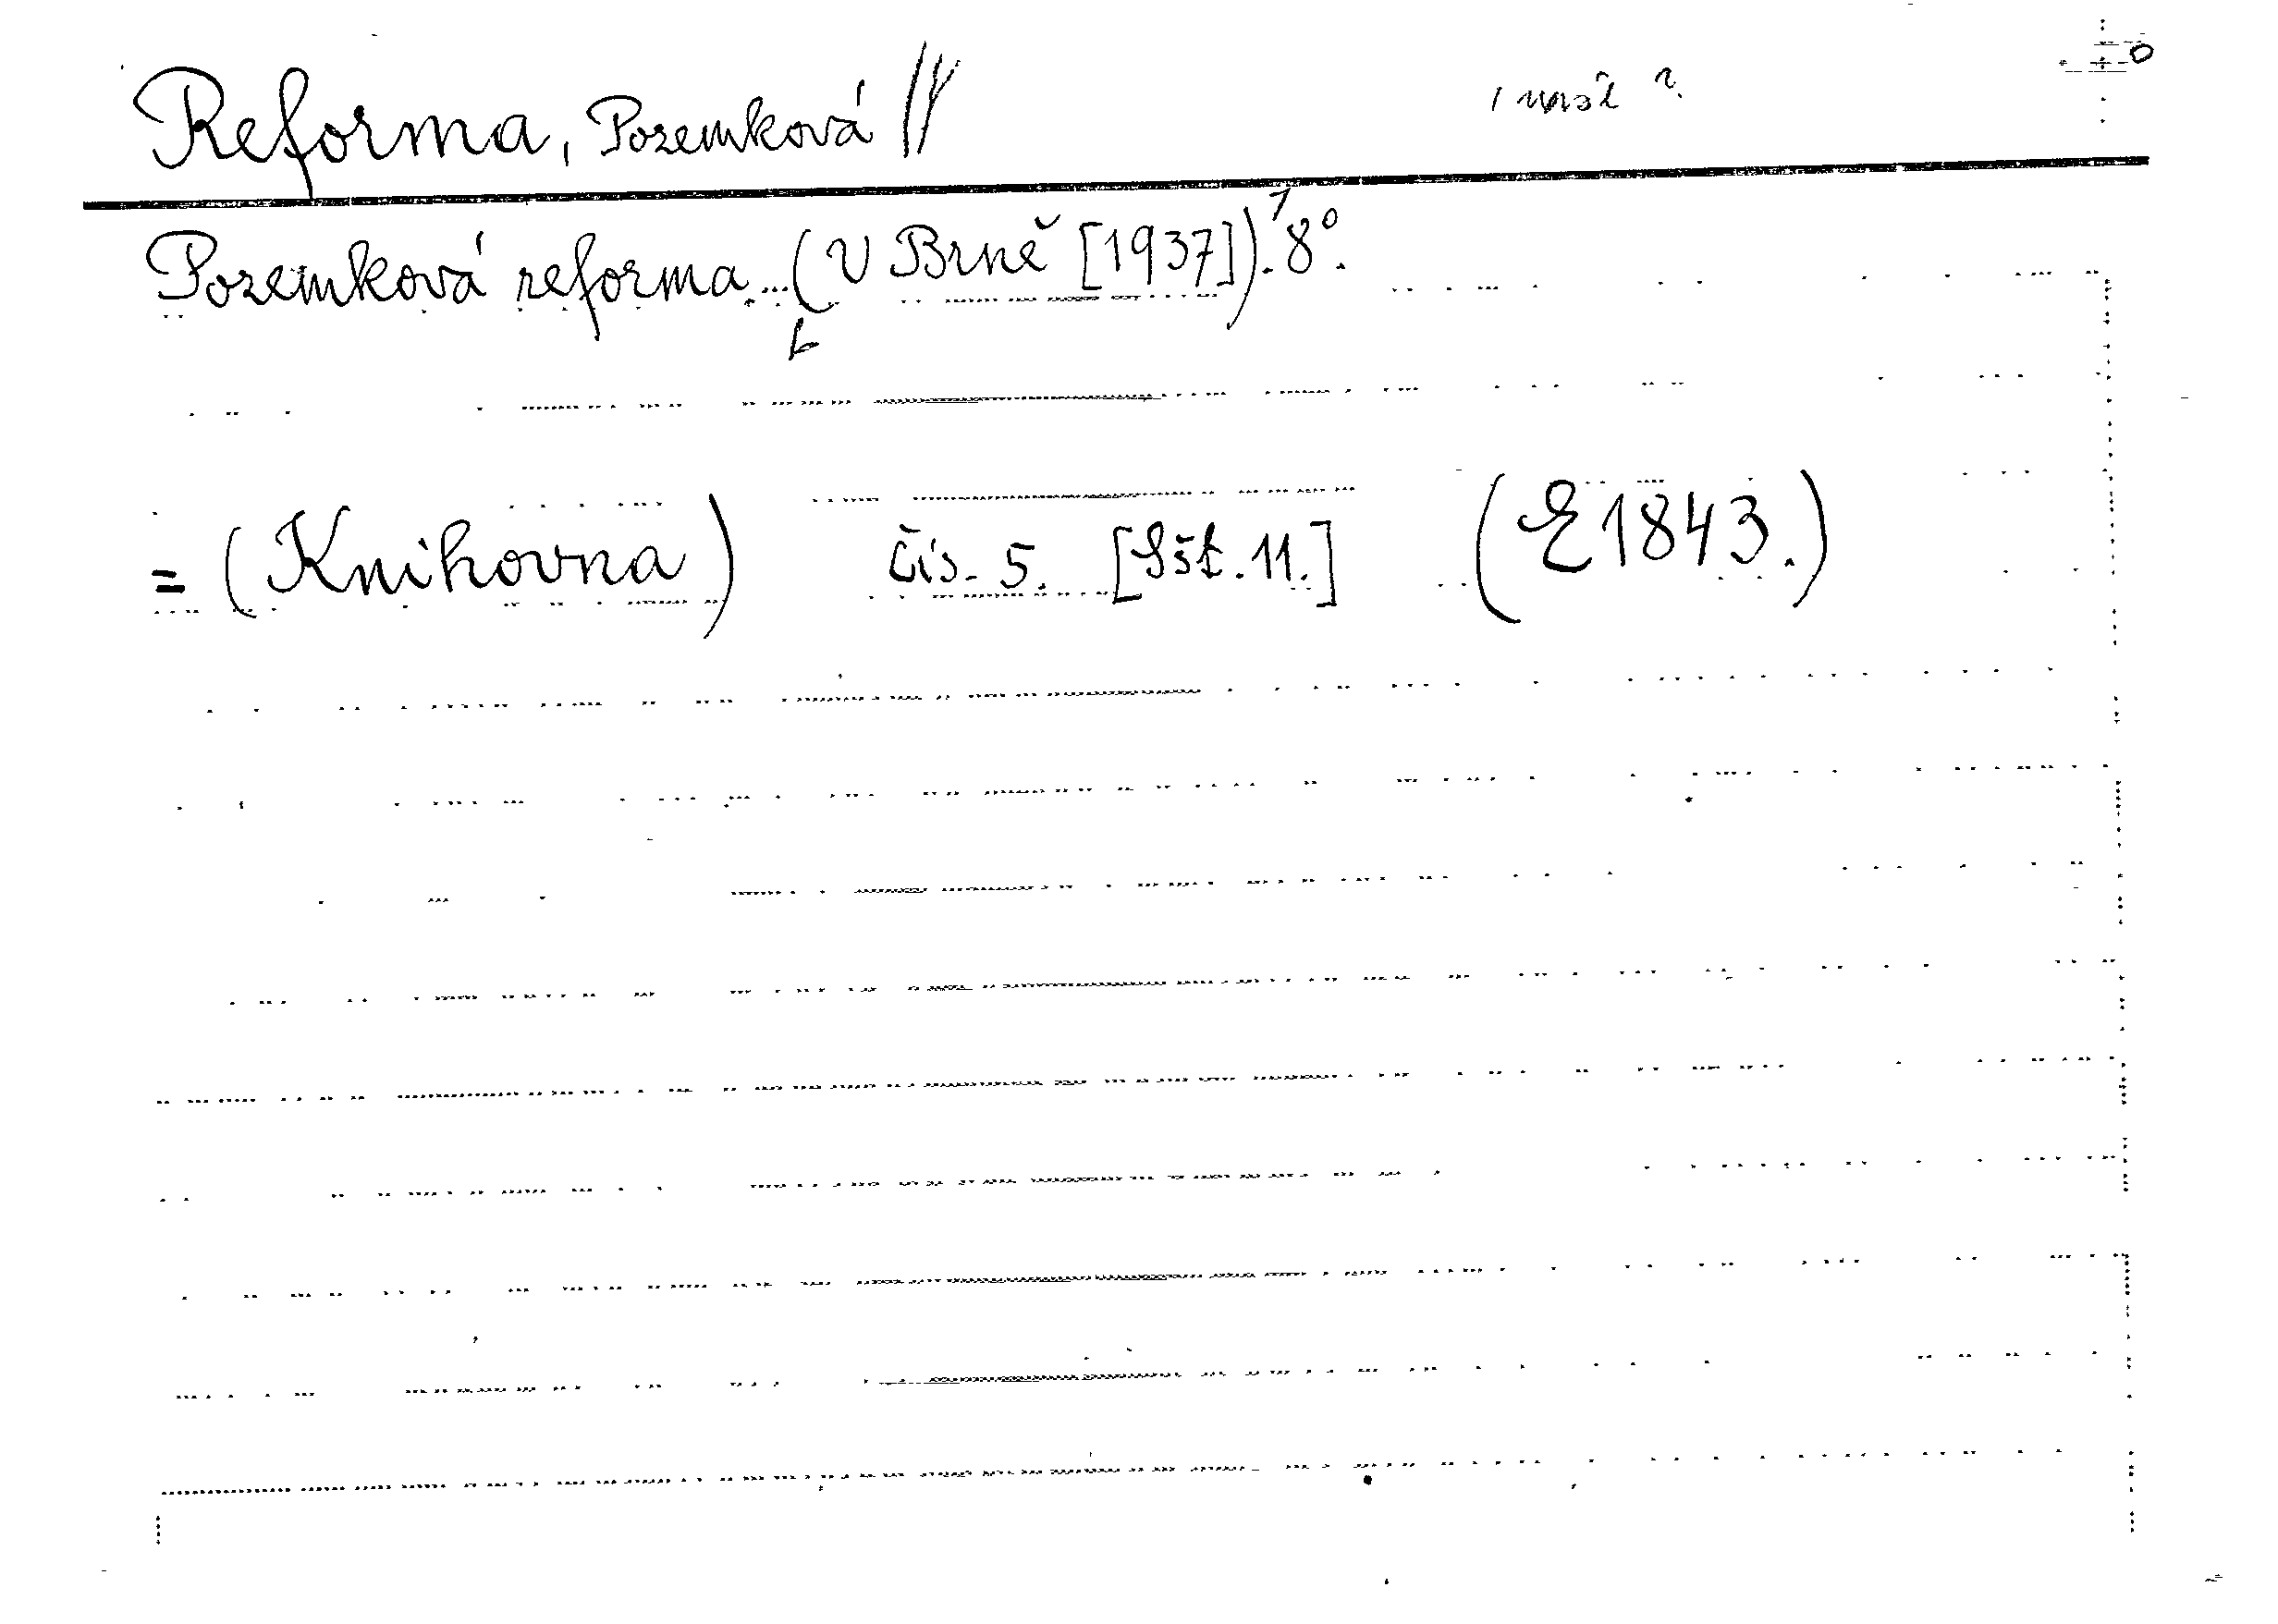 Reforma, Pozemková
Pozemková reforma...(V Brně [1937]). 8°.
= (Knihovna) čís. 5. [Sšt. 11.] (E1843.)